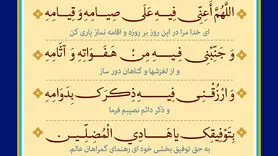 اللَّهُمَّ أَعِنِّی فِیهِ عَلَی صِیَامِهِ وَ قِیَامِهِ
ای خدا مرا در این روز بر روزه و اقامه نماز یاری کن
وَ جَنِّبْنِی فِیهِ مِنْ هَفَوَاتِهِ وَ آثَامِهِ
و از لغزشها و گناهان دور ساز
وَ ارْزُقْنِی فِیهِ ذِکْرَکَ بِدَوَامِهِ
و ذکر دائم نصیبم فرما
بِتَوْفِیقِکَ یَا هَادِیَ الْمُضِلِّینَ
به حق توفیق بخشی خود ای رهنمای گمراهان عالم.